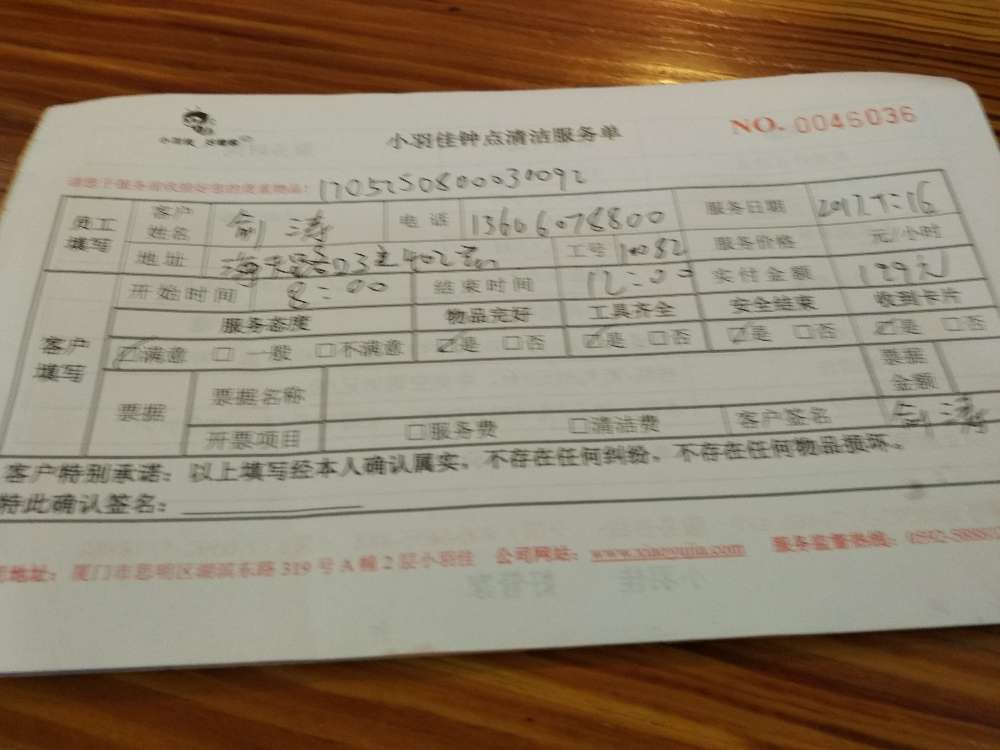 小羽佳 好管家
小羽佳钟点清洁服务单
NO. 0046036
请您于服务前收捡好您的贵重物品! 1705250800030092
员工填写 客户姓名 电话 13606078800 服务日期
地址 工号 10082 服务价格 元/小时
客户填写 开始时间 8:00 结束时间 12:00 实付金额 129元
服务态度 物品完好 工具齐全 安全结束 收到卡片
☑满意 □一般 □不满意 ☑是 □否 ☑是 □否 ☑是 □否 ☑是 □否
票据 票据名称 票据金额
开票项目 □服务费 □清洁费 客户签名
客户特别承诺: 以上填写经本人确认属实,不存在任何纠纷,不存在任何物品损坏。
特此确认签名:
地址: 厦门市思明区湖滨东路319号A幢2层小羽佳 公司网站: www.xiaoyujia.com 服务监督热线: